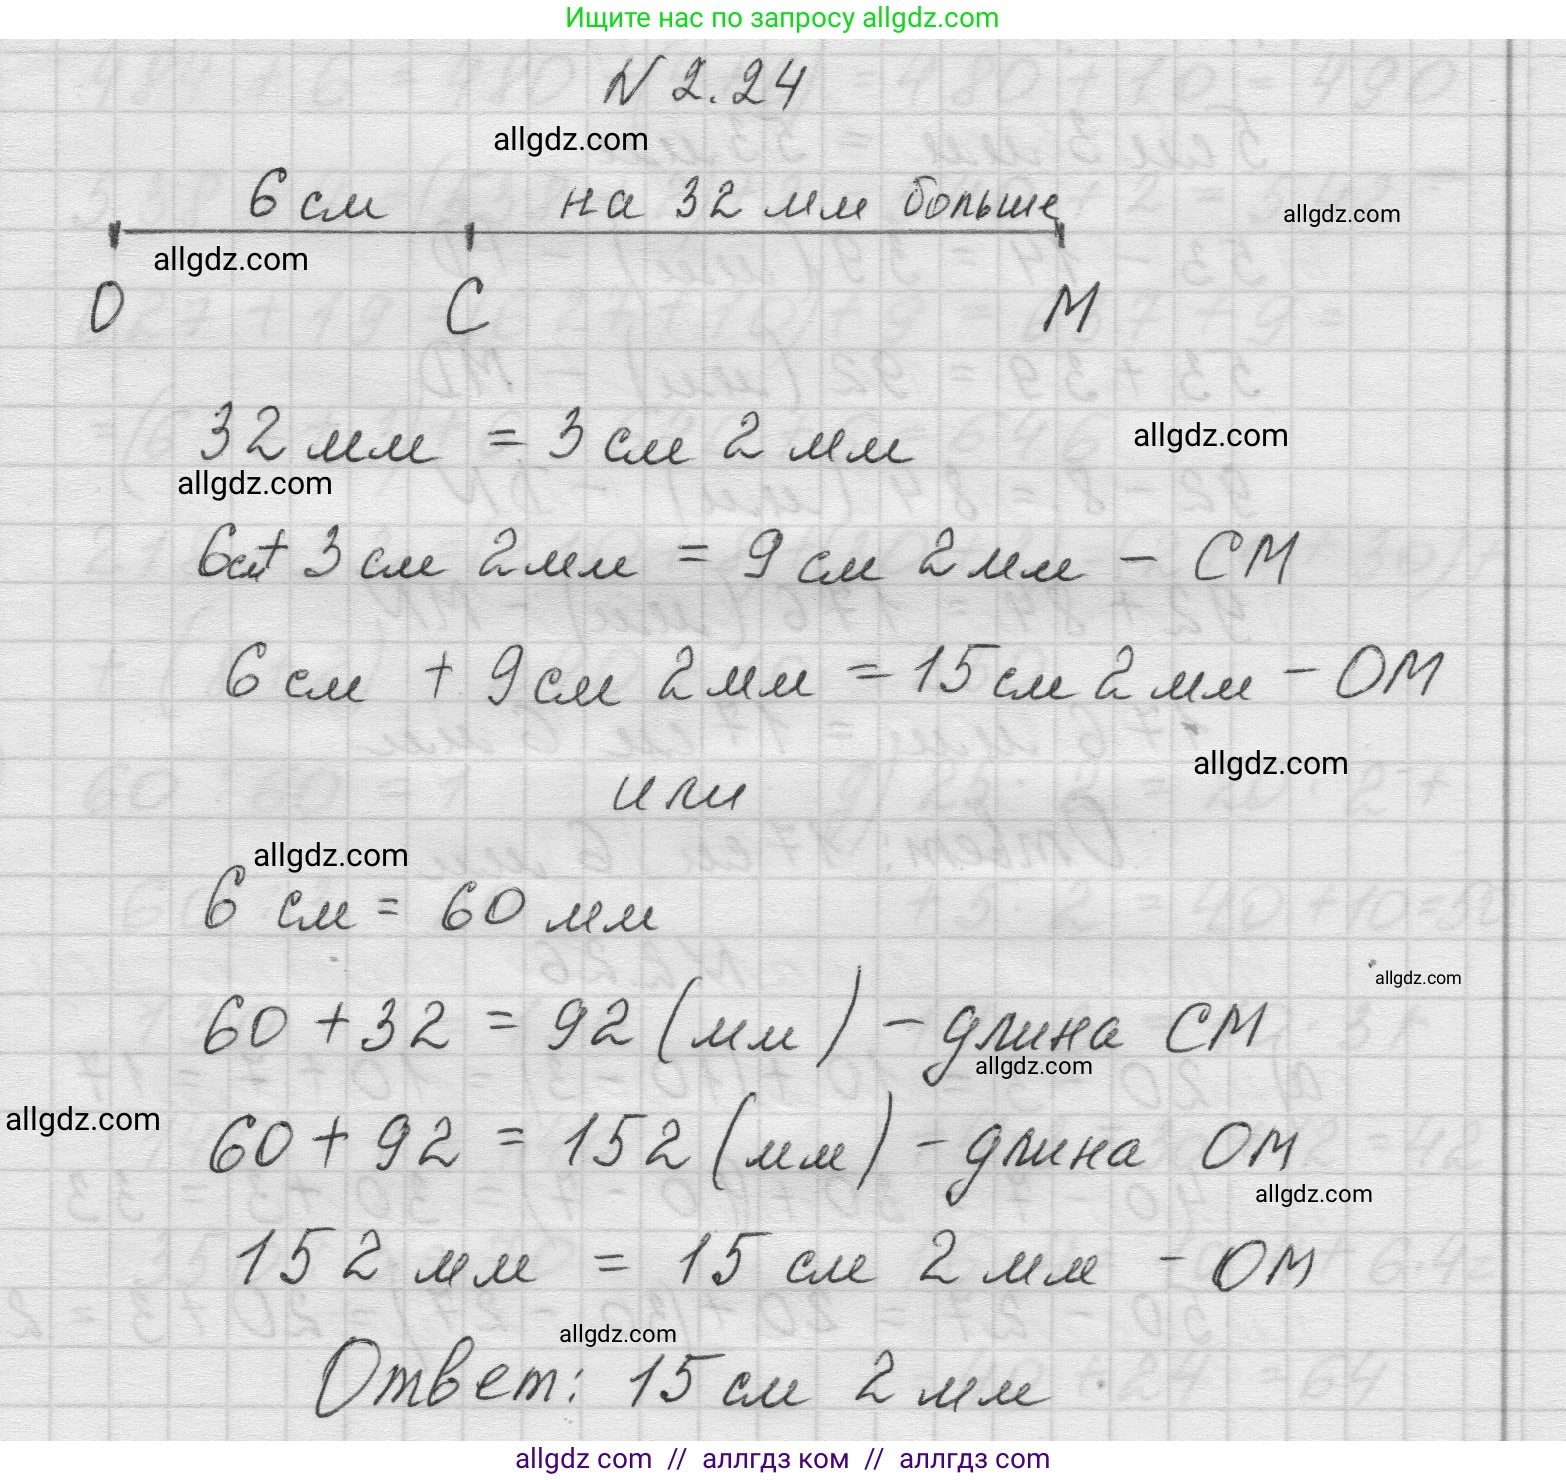 Ищите нас по запросу allgdz.com
N 2.24
allgdz.com
6 см на 32 мм больше
allgdz.com
allgdz.com
О С М
32 мм = 3 см 2 мм
allgdz.com
allgdz.com
6см + 3 см 2 мм = 9 см 2 мм - СМ
6 см + 9 см 2 мм = 15 см 2 мм - ОМ
allgdz.com
или
allgdz.com
6 см = 60 мм
allgdz.com
60 + 32 = 92 (мм) - длина СМ
allgdz.com
allgdz.com
60 + 92 = 152 (мм) - длина ОМ
allgdz.com
152 мм = 15 см 2 мм - ОМ
allgdz.com
Ответ: 15 см 2 мм
allgdz com // аллгдз ком // аллгдз com